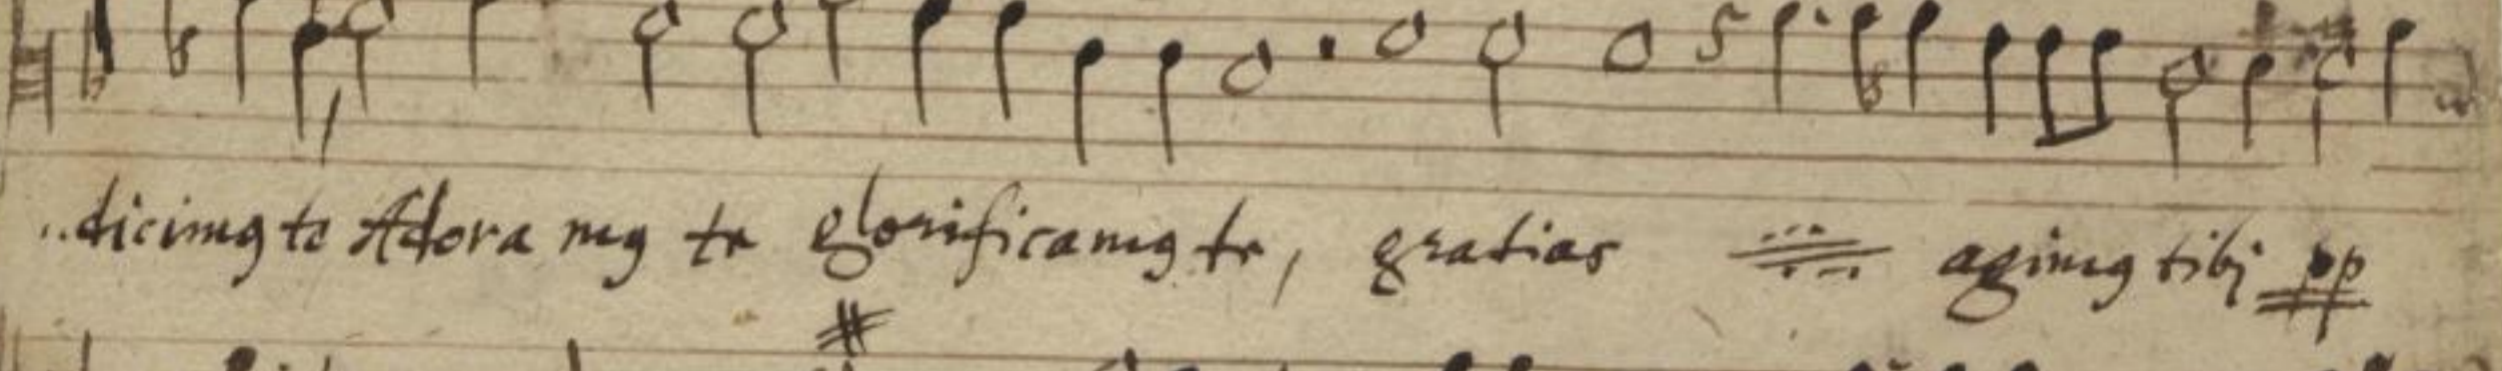 ..dicimꝰ te Adora mꝰ te glorificamꝰ te, gratias agimꝰ tibj pp